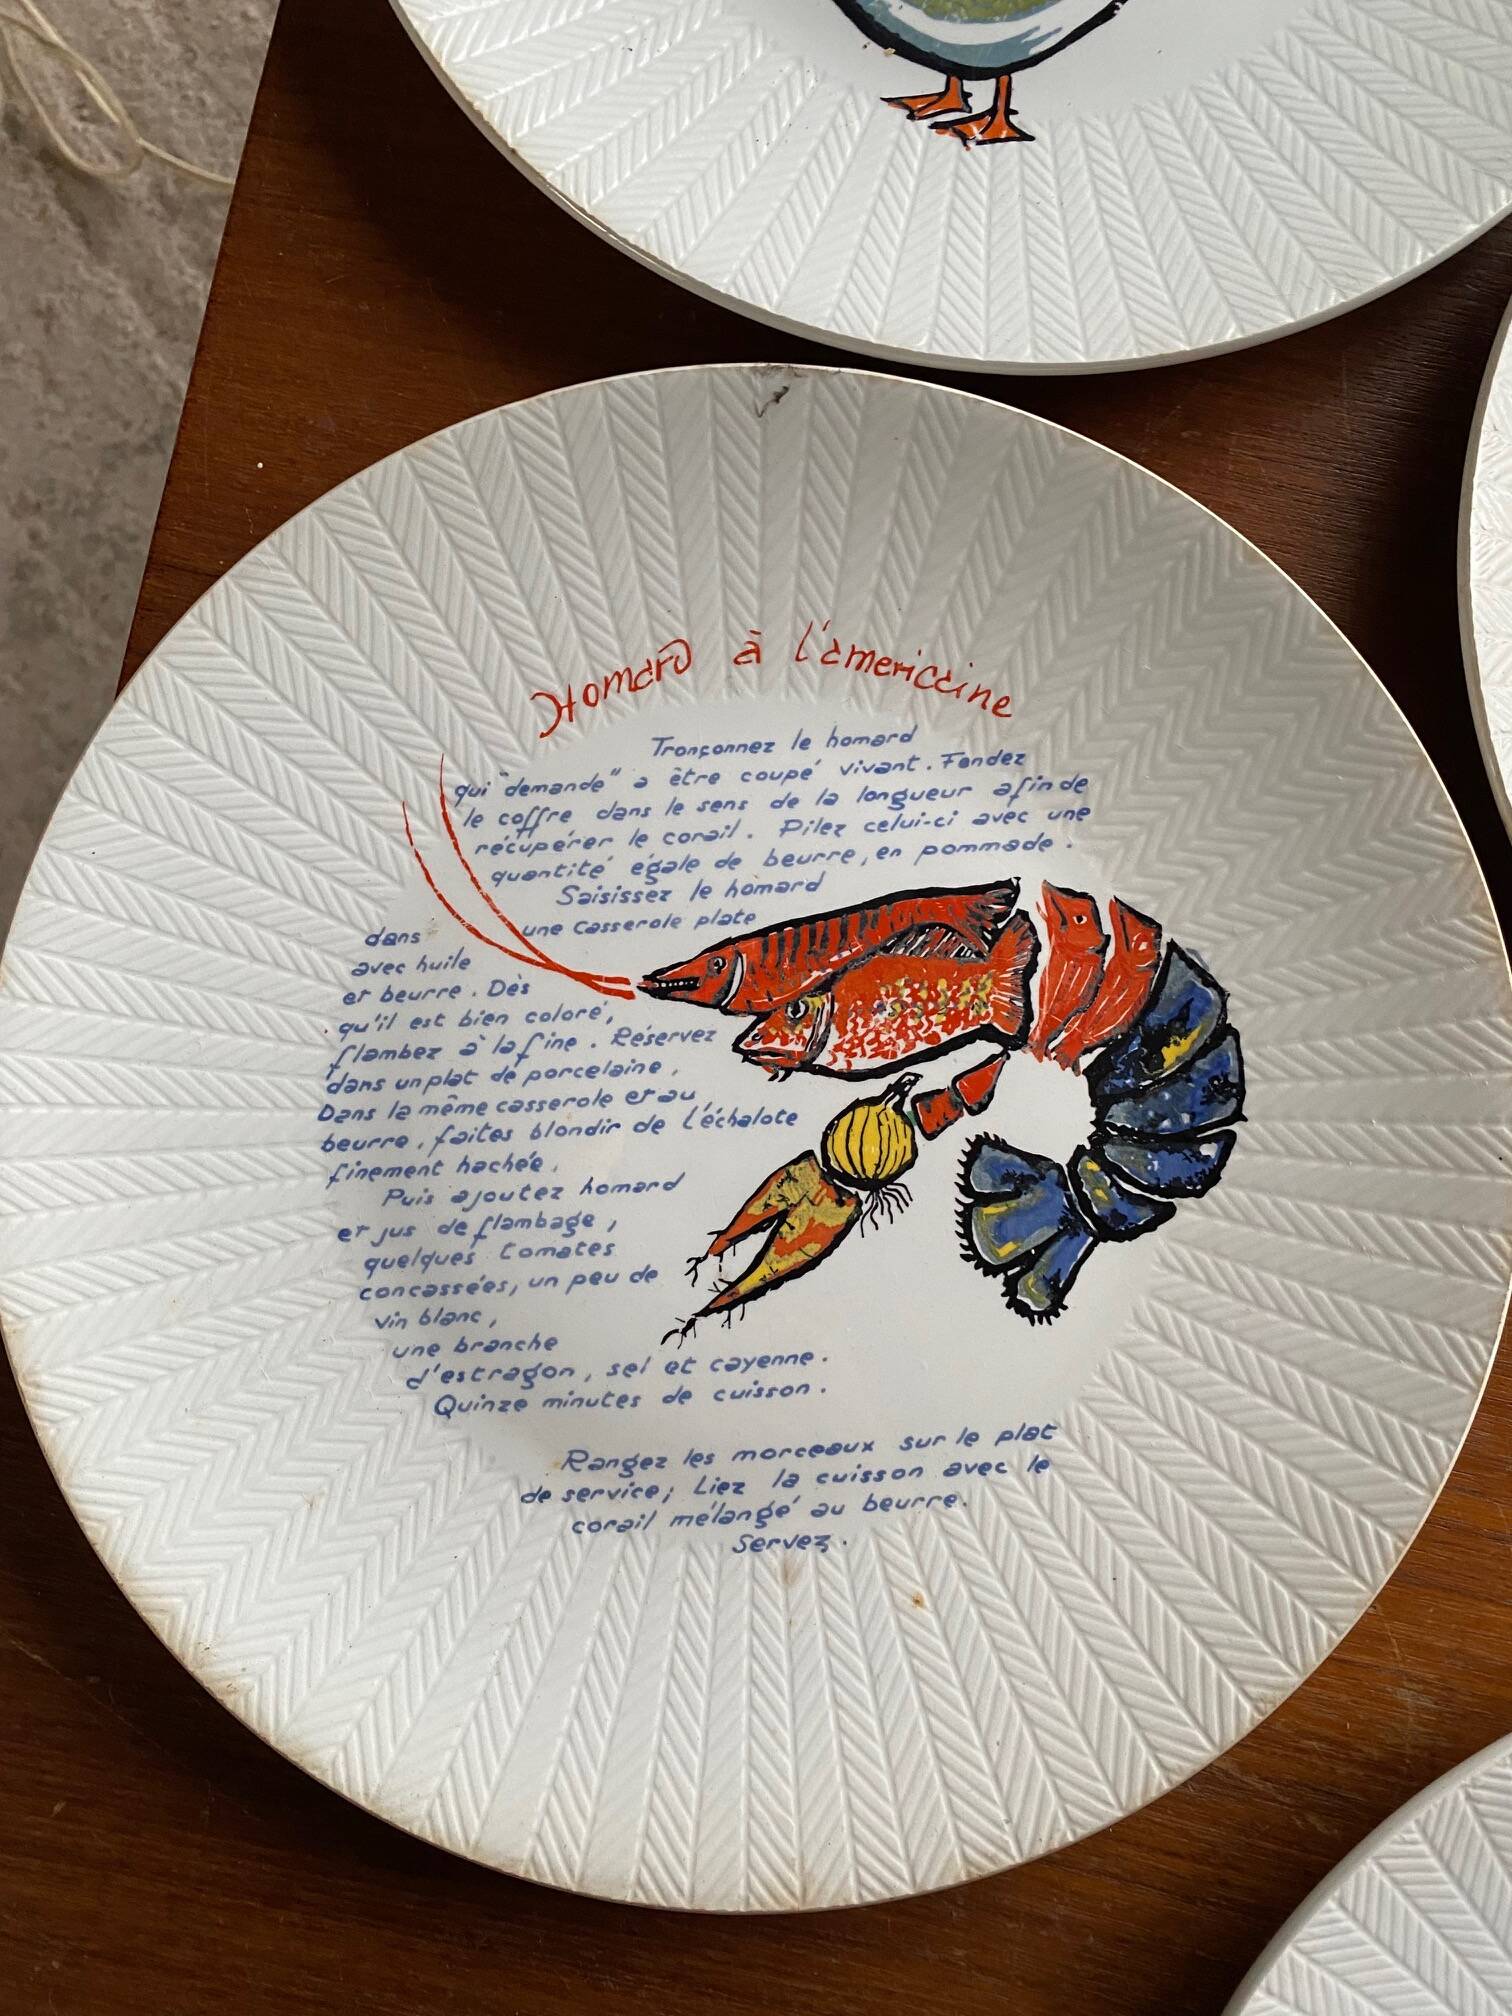 Homard à l'americaine
Tronçonnez le homard
qui "demande" a être coupé vivant. Fendez
le coffre dans le sens de la longueur afin de
récupérer le corail. Pilez celui-ci avec une
quantité égale de beurre, en pommade.
Saisissez le homard
dans une casserole plate
avec huile
et beurre. Dès
qu'il est bien coloré,
flambez à la fine. Réservez
dans un plat de porcelaine.
Dans la même casserole et au
beurre, faites blondir de l'échalote
finement hachée.
Puis ajoutez homard
et jus de flambage,
quelques tomates
concassées, un peu de
vin blanc,
une branche
d'estragon, sel et cayenne.
Quinze minutes de cuisson.
Rangez les morceaux sur le plat
de service; Liez la cuisson avec le
corail mélangé au beurre.
Servez.